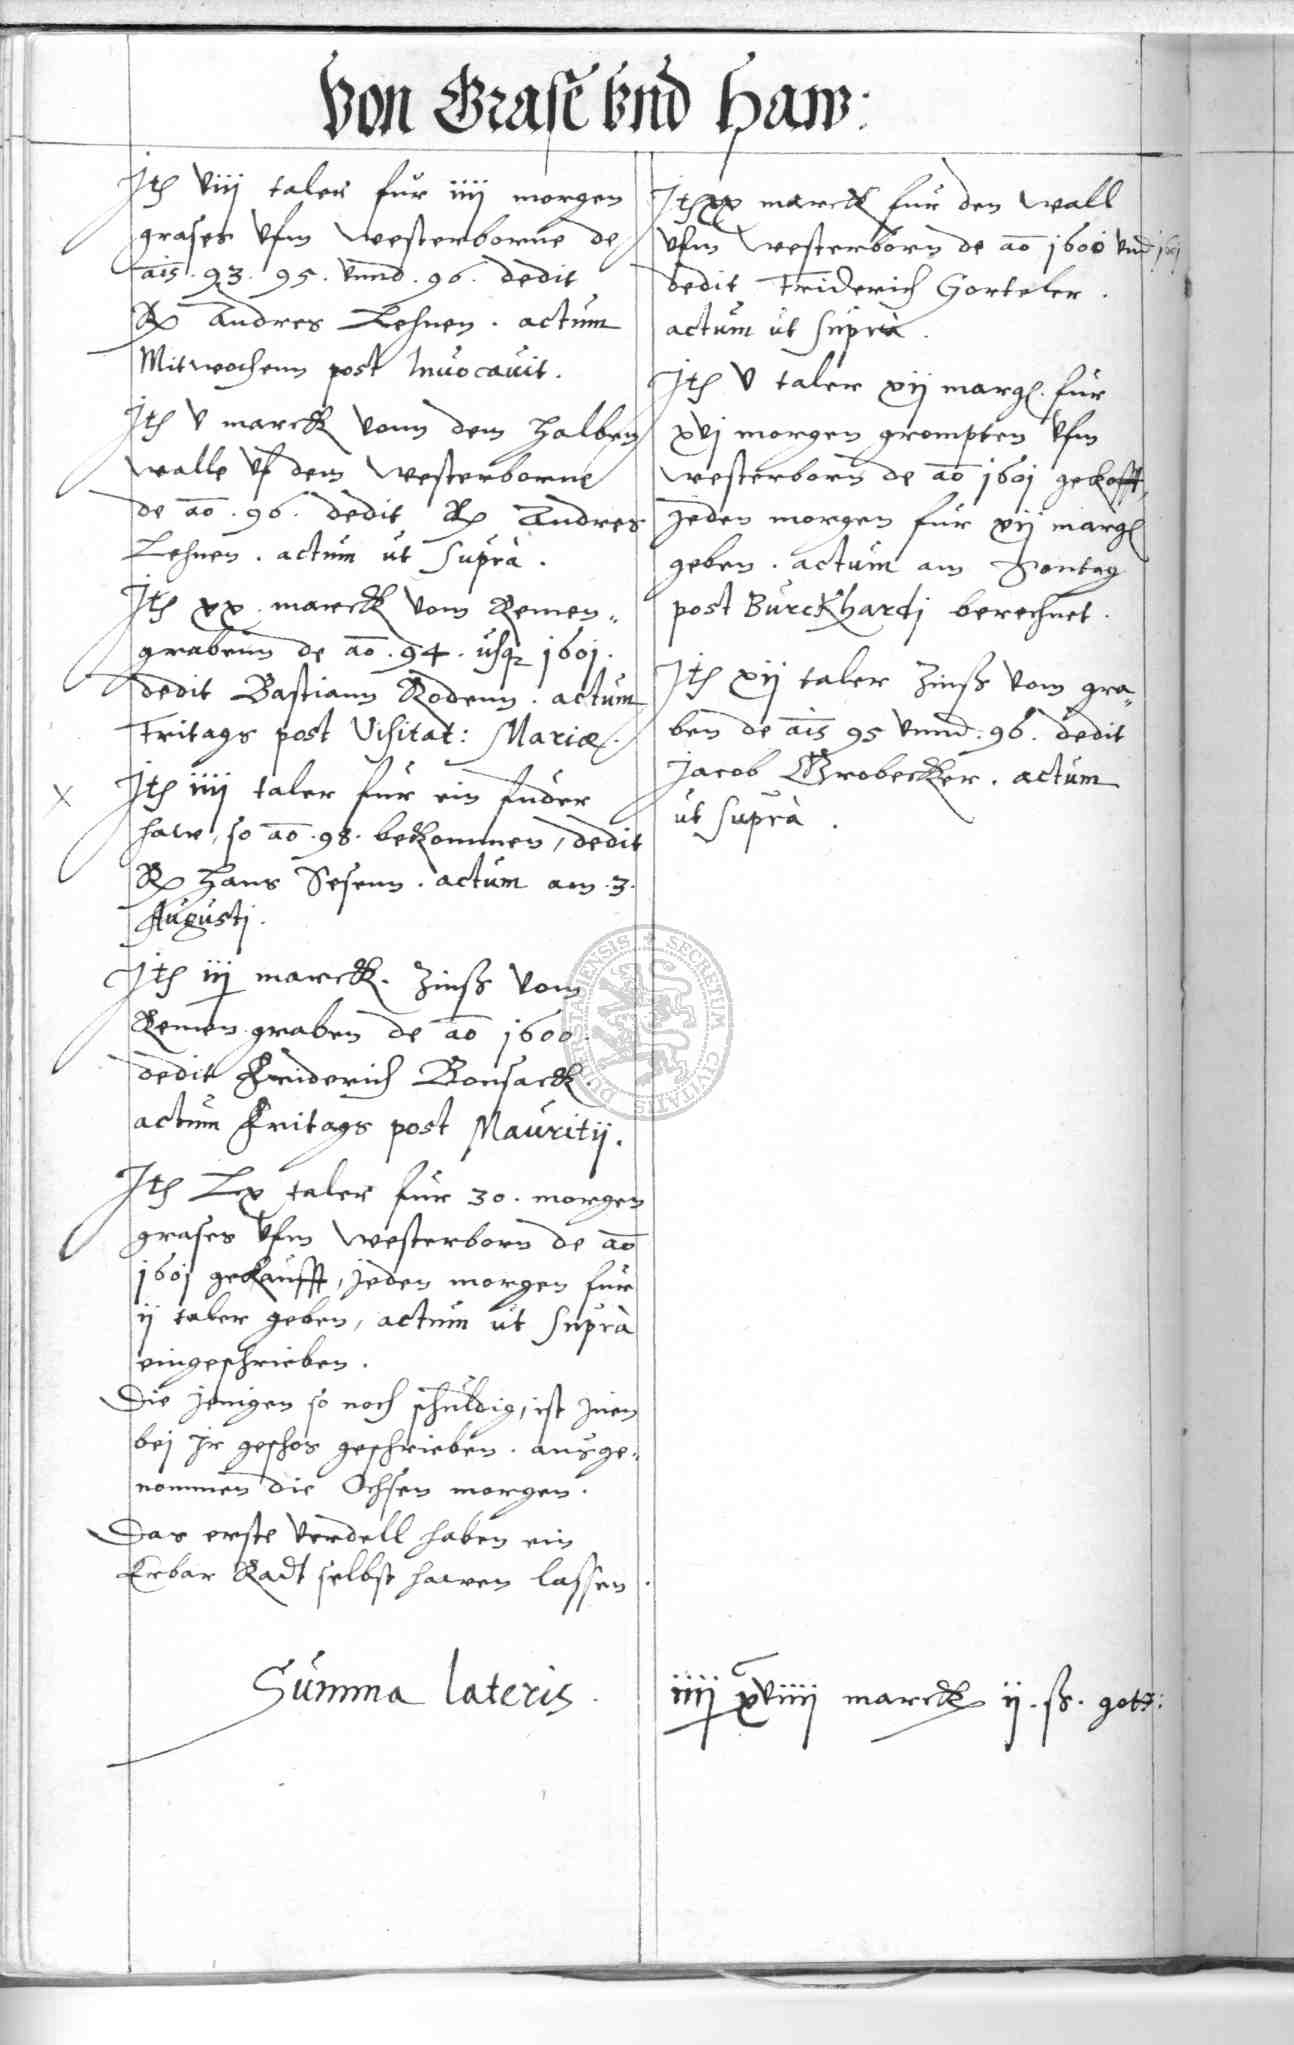 Von Grase vnd Haw:
Jt viij taler fur iiij morgen
grases vfm Westerborne de
ais. 93. 95. vnnd. 96. dedit
Andres Lehnen. actum
Mitwochenn post Invocavit.
Jt v marck vonn dem halben
walle vf dem Westerborne
de ao. 96. dedit Andres
Lehnen. actum ut Suprà.
Jt xx. marck vom Remen„
grabenn de ao. 94. usq 1601.
dedit Bastiann Rodenn. actum
Fritags post Visitat: Mariæ.
Jt iiij taler fur ein fuder
haw, so ao. 98. bekommen, dedit
Hans Sesenn. actum am. 3.
Augustj.
Jt iij marck. Zinß vom
Remen graben de ao 1600.
dedit Friderich Bonsack.
actum Fritags post Mauritij.
Jt Lx taler fur 30. morgen
grases vfm Westerborn de ao
1601 gekaufft, jeden morgen fur
ij taler geben, actum ut Suprà
eingeschrieben.
Die jenigen so noch schuldig, ist jnen
bej jr geschos geschrieben. ausge„
nommen die Ochsen morgen.
Das erste verdell haben ein
Erbar Radt selbst hawen lassen.
Jt xx marck fur den wall
vfm Westerborn de ao 1600 vnd 1601
dedit Friderich Gorteler.
actum ut Suprà.
Jt v taler xij marg. fur
xvj morgen grompten vfm
westerborn de ao 1601 gekofft,
jeden morgen fur xij marg
geben. actum am Sontag
post Burckhardj berechnet.
Jt xij taler Zinß vom gra„
ben de ais 95 vnnd. 96. dedit
Jacob Grobecker. actum
ut Suprà.
Summa lateris.
iiij xviiij marck ij. ß. gots:
SECRETUM CIVITATIS DUDERSTADIENSIS